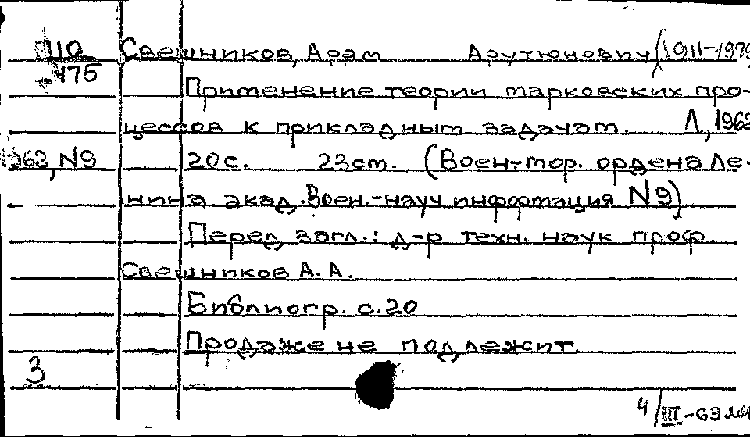 110 Свешников, Арам Арутюнович (1911-1979
475
Применение теории марковских про-
цессов к прикладным задачам. Л., 1963
1963, №9 20с. 23см. (Воен-мор. ордена Ле-
нина акад. Воен.-науч информация №9)
Перед загл.: д-р техн. наук проф.
Свешников А. А.
Библиогр. с.20
Продаже не подлежит
3
4/III-63